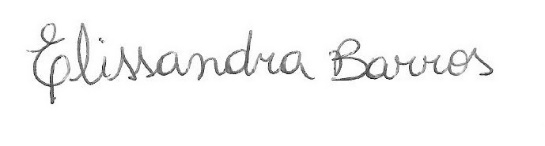 Elissandra Barros